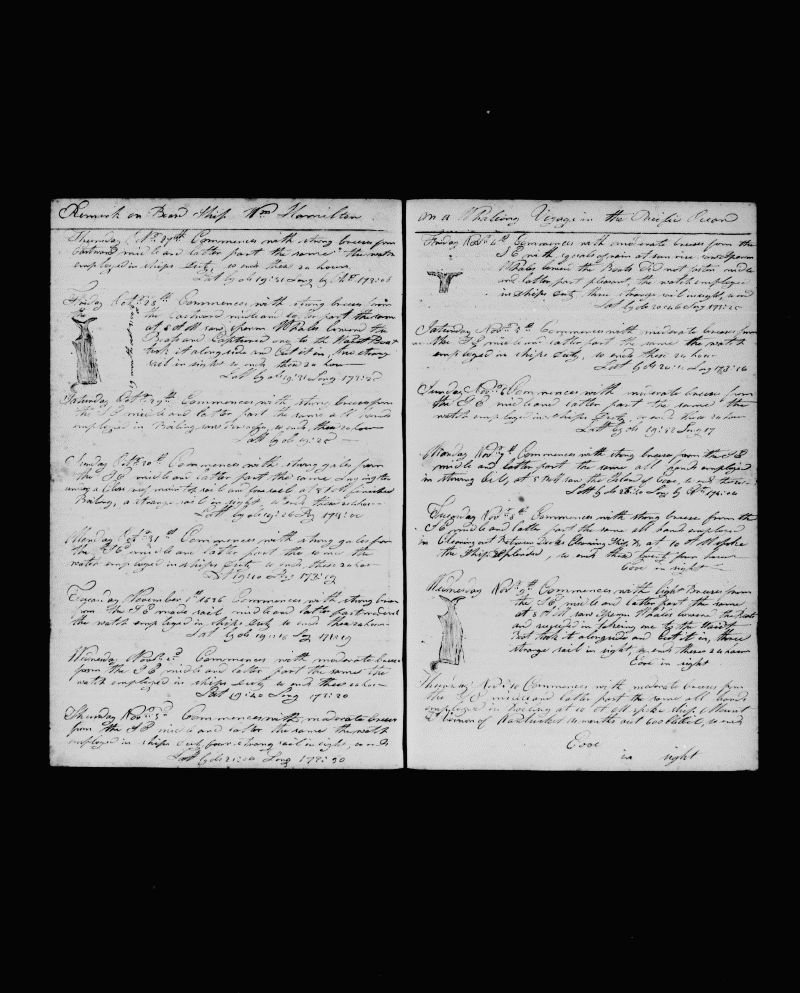 Remark on Board Ship Wm Hamilton
Thursday Oct 27th Commences with strong breezes from
Eastward middle and latter part the same the watch
employed in ships Duty, so ends these 24 hours
Latt by ob 19:31 Long by
Friday Oct 28th Commences with strong breezes from
the Eastward middle and latter part the same
at 8 A M saw Sperm Whales lowered the
Boats and Captured one to the Waist Boat
took it alongside and Cut it in, two strang
sail in sight so ends these 24 hours
Latt by ob 19:31 Long 173:25
Saturday Oct 29th Commences with strong breezes from
the S E middle and latter part the same all hands
employed in Boiling so ends these 24 hours
Latt by ob 19:25
Sunday Oct 30th Commences with strong gales from
the S E middle and latter part the same Laying too
under a Close reef main top sail and fore sail at 8 finished
Boiling, a strange sail in sight, so ends these 24 hours
Latt by ob 19:26 Long 173:
Monday Oct 31st Commences with strong gales from
the S E middle and latter part the same the
watch employed in ships Duty so ends these 24 hours
Lat 19:10 Long 173:19
Tuesday November 1st 1836 Commences with strong breezes
from the S E made sail middle and latter part moderate
the watch employed in ships Duty so ends these 24 hours
Lat by ob 19:18 Long
Wednesday Novbr 2d Commences with moderate breezes
from the S E middle and latter part the same the
watch employed in ships Duty so ends these 24 hours
Latt 19:40 Long 173:20
Thursday Novbr 3d Commences with moderate breezes
from the S E middle and latter the same the watch
employed in ships Duty four strang sail in sight, so ends
Latt by ob 21:00 Long 172:50
on a Whaleing Voyage in the Pacific Ocean
Friday Novbr 4th Commences with moderate breezes from the
S E with squals of rain at sun rise saw Sperm
Whales lowered the Boats Did not fasten middle
and latter part pleasant, the watch employed
in ships Duty three strange sail in sight, so ends
Latt by ob 20:46 Long 173:20
Saturday Novbr 5th Commences with moderate breezes from
the S E middle and latter part the same the watch
employed in ships Duty, so ends these 24 hours
Latt by ob 20:10 Long 173:16
Sunday Novbr 6 Commences with moderate breezes from
the S E middle and latter part the same the
watch employed in ships Duty so ends these 24 hours
Latt by ob 19:52 Long 17
Monday Novbr 7th Commences with strong breezes from the S E
middle and latter part the same all hands employed
in stowing oil, at 5 P M saw the Island of Eooe, so ends these
Latt by ob Long by
Tuesday Novbr 8th Commences with strong breezes from the
S E middle and latter part the same all hands employed
in Cleaning out Between Decks Cleaning Ship, at 10 A M spoke
the Ship Splendid, so ends these twenty four hours
Eooe in sight
Wednesday Novbr 9th Commences with light Breezes from
the S E middle and latter part the same
at 8 A M saw Sperm Whales lowered the Boats
and succeeded in takeing one by the Waist
Boat took it alongside and Cut it in, three
strange sail in sight, so ends these 24 hours
Eooe in sight
Thursday Novbr 10 Commences with moderate breezes from
the S E middle and latter part the same all hands
employed in Boiling at 10 A M spoke ship Mount
Vernon of Nantucket months out 600 so ends
Eooe
in sight